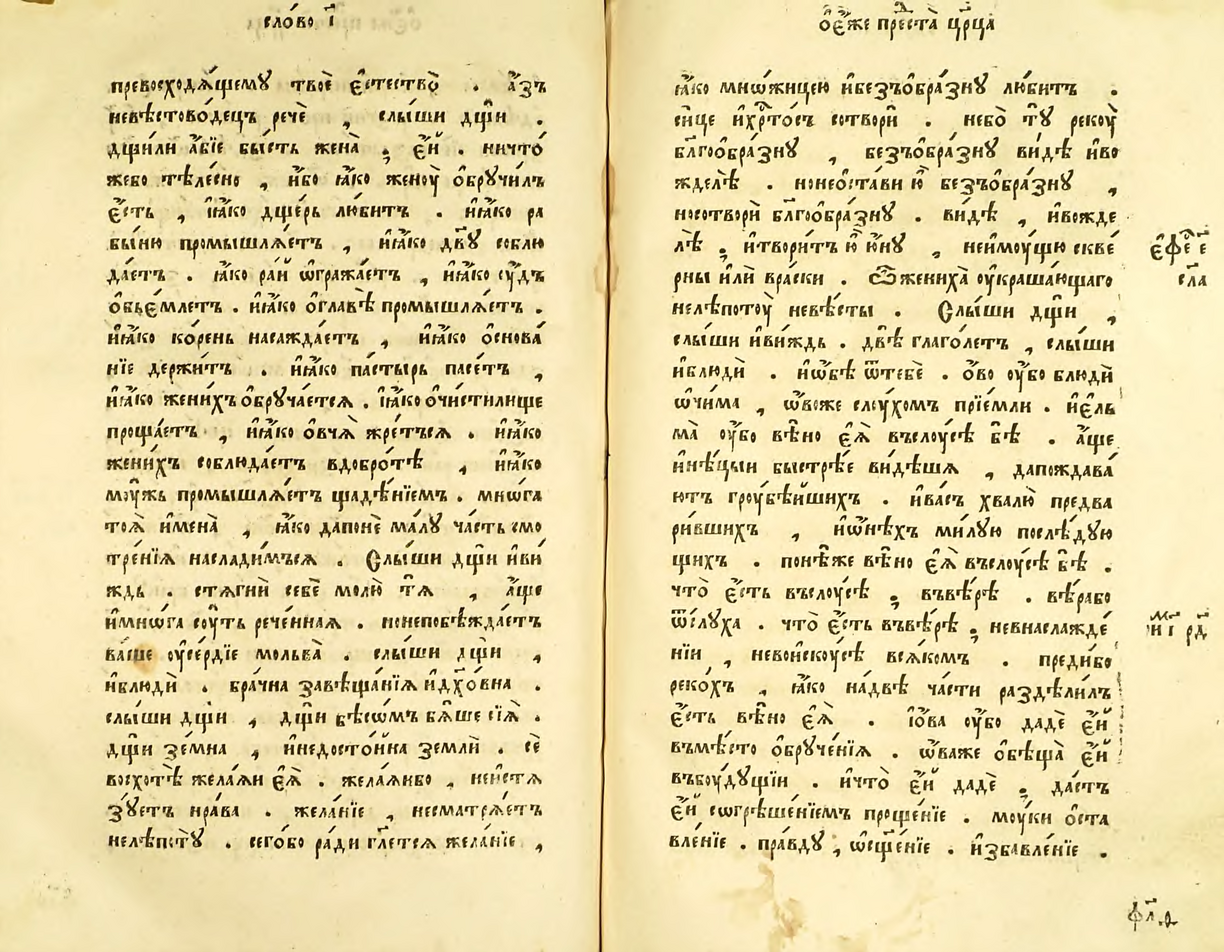 сло́во і҃
превосходѧ́щемꙋ твоѐ є҆стество̀ . а҆́зъ
невѣстово́децъ речѐ , слы́ши дщи .
дщи́ли а҆́бїе бы́сть жена̀ ; є҆́й . ничто́
жебо тѣле́сно , и҆́бо ꙗ҆́ко женоу̀ ѻ҆брꙋчи́лъ
є҆́сть , ꙗ҆́ко дще́рь лю́битъ . и҆ꙗ҆́ко ра
бы́ню промышлѧ́етъ , и҆ꙗ҆́ко дв҃ꙋ соблю
да́етъ . ꙗ҆́ко ра́й ѡ҆гражда́етъ , и҆ꙗ҆́ко сꙋ́дъ
ѻ҆бье́млетъ . и҆ꙗ҆́ко ѻ҆главѣ̀ промышлѧ́етъ .
и҆ꙗ҆́ко ко́рень насажда́етъ , и҆ꙗ҆́ко ѻ҆снова́
нїе держи́тъ . и҆ꙗ҆́ко па́стырь пасе́тъ ,
и҆ꙗ҆́ко жени́хъ ѻ҆брꙋча́етсѧ . ꙗ҆́ко ѻ҆чисти́лище
проща́етъ , и҆ꙗ҆́ко ѻ҆вчѧ̀ жре́тъсѧ . и҆ꙗ҆́ко
жени́хъ соблюда́етъ вдобро́тѣ , и҆ꙗ҆́ко
моу́жь промышлѧ́етъ щадѣ́нїемъ . мнѡга
тоѧ̀ и҆мена̀ , ꙗ҆́ко дапонѐ ма́лꙋ ча́сть смо
тре́нїѧ наслади́мъсѧ . Слы́ши дщи и҆ви
ждь . стѧгнѝ себѐ молю̀ тѧ , а҆́ще
и҆мнѡ́га соу́ть рече́ннаѧ . нонепобѣжда́етъ
ва́ше оу҆се́рдїе мольва̀ . слы́ши дщи ,
и҆блюдѝ . бра́чна завѣща́нїѧ и҆дх҃о́вна .
слы́ши дщи , дщи бѣсѡ́мъ бѧ́ше сїѧ̀ .
дщи зе́мна , и҆недосто́йна землѝ . сѐ
восхотѣ̀ жела́ѧи є҆ѧ̀ . жела́ѧиво , неистѧ
зꙋ́етъ нра́ва . жела́нїе , несматрѧ́етъ
нелѣпотꙋ̀ . сего́бо ра́ди гл҃етсѧ жела́нїе ,
ѻ҆е҆́йже прест҃а цр҃ца
ꙗ҆́ко мнѡ́жицею и҆безъѻбра́знꙋ лю́битъ .
си́це и҆хр҃то́съ сотворѝ . небо̀ тꙋ рекоу̀
бл҃гоѻбра́знꙋ , безъѻбра́знꙋ ви́дѣ и҆во
ждeлѣ̀ . нонеѻста́ви ю҆̀ безъѻбра́знꙋ ,
носотворѝ бл҃гоѻбра́знꙋ . ви́дѣ , и҆вожде
лѣ̀ ; и҆твори́тъ ю҆̀ ю҆́нꙋ , неи҆моу́щю скве́
рны и҆лѝ вра́ски . Ѽ жениха̀ оу҆краша́ющаго
нелѣпотоу̀ невѣ́сты . Слы́ши дщи ,
слы́ши и҆ви́ждь . двѣ̀ глаго́летъ , слы́ши
и҆блюдѝ . и҆ѡбѣ̀ ѿтебѐ . ѻ҆́во оу҆́бо блюдѝ
ѻ҆чи́ма , ѡ҆́воже слоу́хомъ прїе́мли . и҆е҆́ль
ма̀ оу҆́бо вѣ́но є҆ѧ̀ въслоу́сѣ бѣ̀ . а҆́ще
и҆нѣ́цыи быстрѣ́е ви́дѣшѧ , дапождава́
ютъ гроубѣ́йшихъ . и҆ва́съ хвалю̀ предва
ри́вшихъ , и҆ѡни́хъ ми́лую послѣ́дꙋю
щихъ . поне́же вѣ́но є҆ѧ̀ въслоу́сѣ бѣ̀ .
что̀ є҆́сть въслоу́сѣ ; въвѣ́рѣ . вѣ́рабо
ѿслꙋха . что̀ є҆́сть въвѣ́рѣ ; невнаслажде́
нїи , невои҆скоу́сѣ всѧ́комъ . преди́бо
реко́хъ , ꙗ҆́ко на́двѣ ча́сти раздѣли́лъ
є҆́сть вѣ́но є҆ѧ̀ . і҆о́ва оу҆́бо дадѐ є҆́й
въмѣ́сто ѻ҆брꙋче́нїѧ . ѡ҆́важе ѻ҆бѣща̀ є҆́й
въбоу́дꙋщїи . и҆что̀ є҆́й дадѐ ; да́стъ
є҆́й согрѣше́нїемъ проще́нїе . моу́ки ѻ҆ста
вле́нїе . пра́вдꙋ , ѡ҆сщ҃е́нїе . и҆збавле́нїе .
є҆фе є
сл҃а